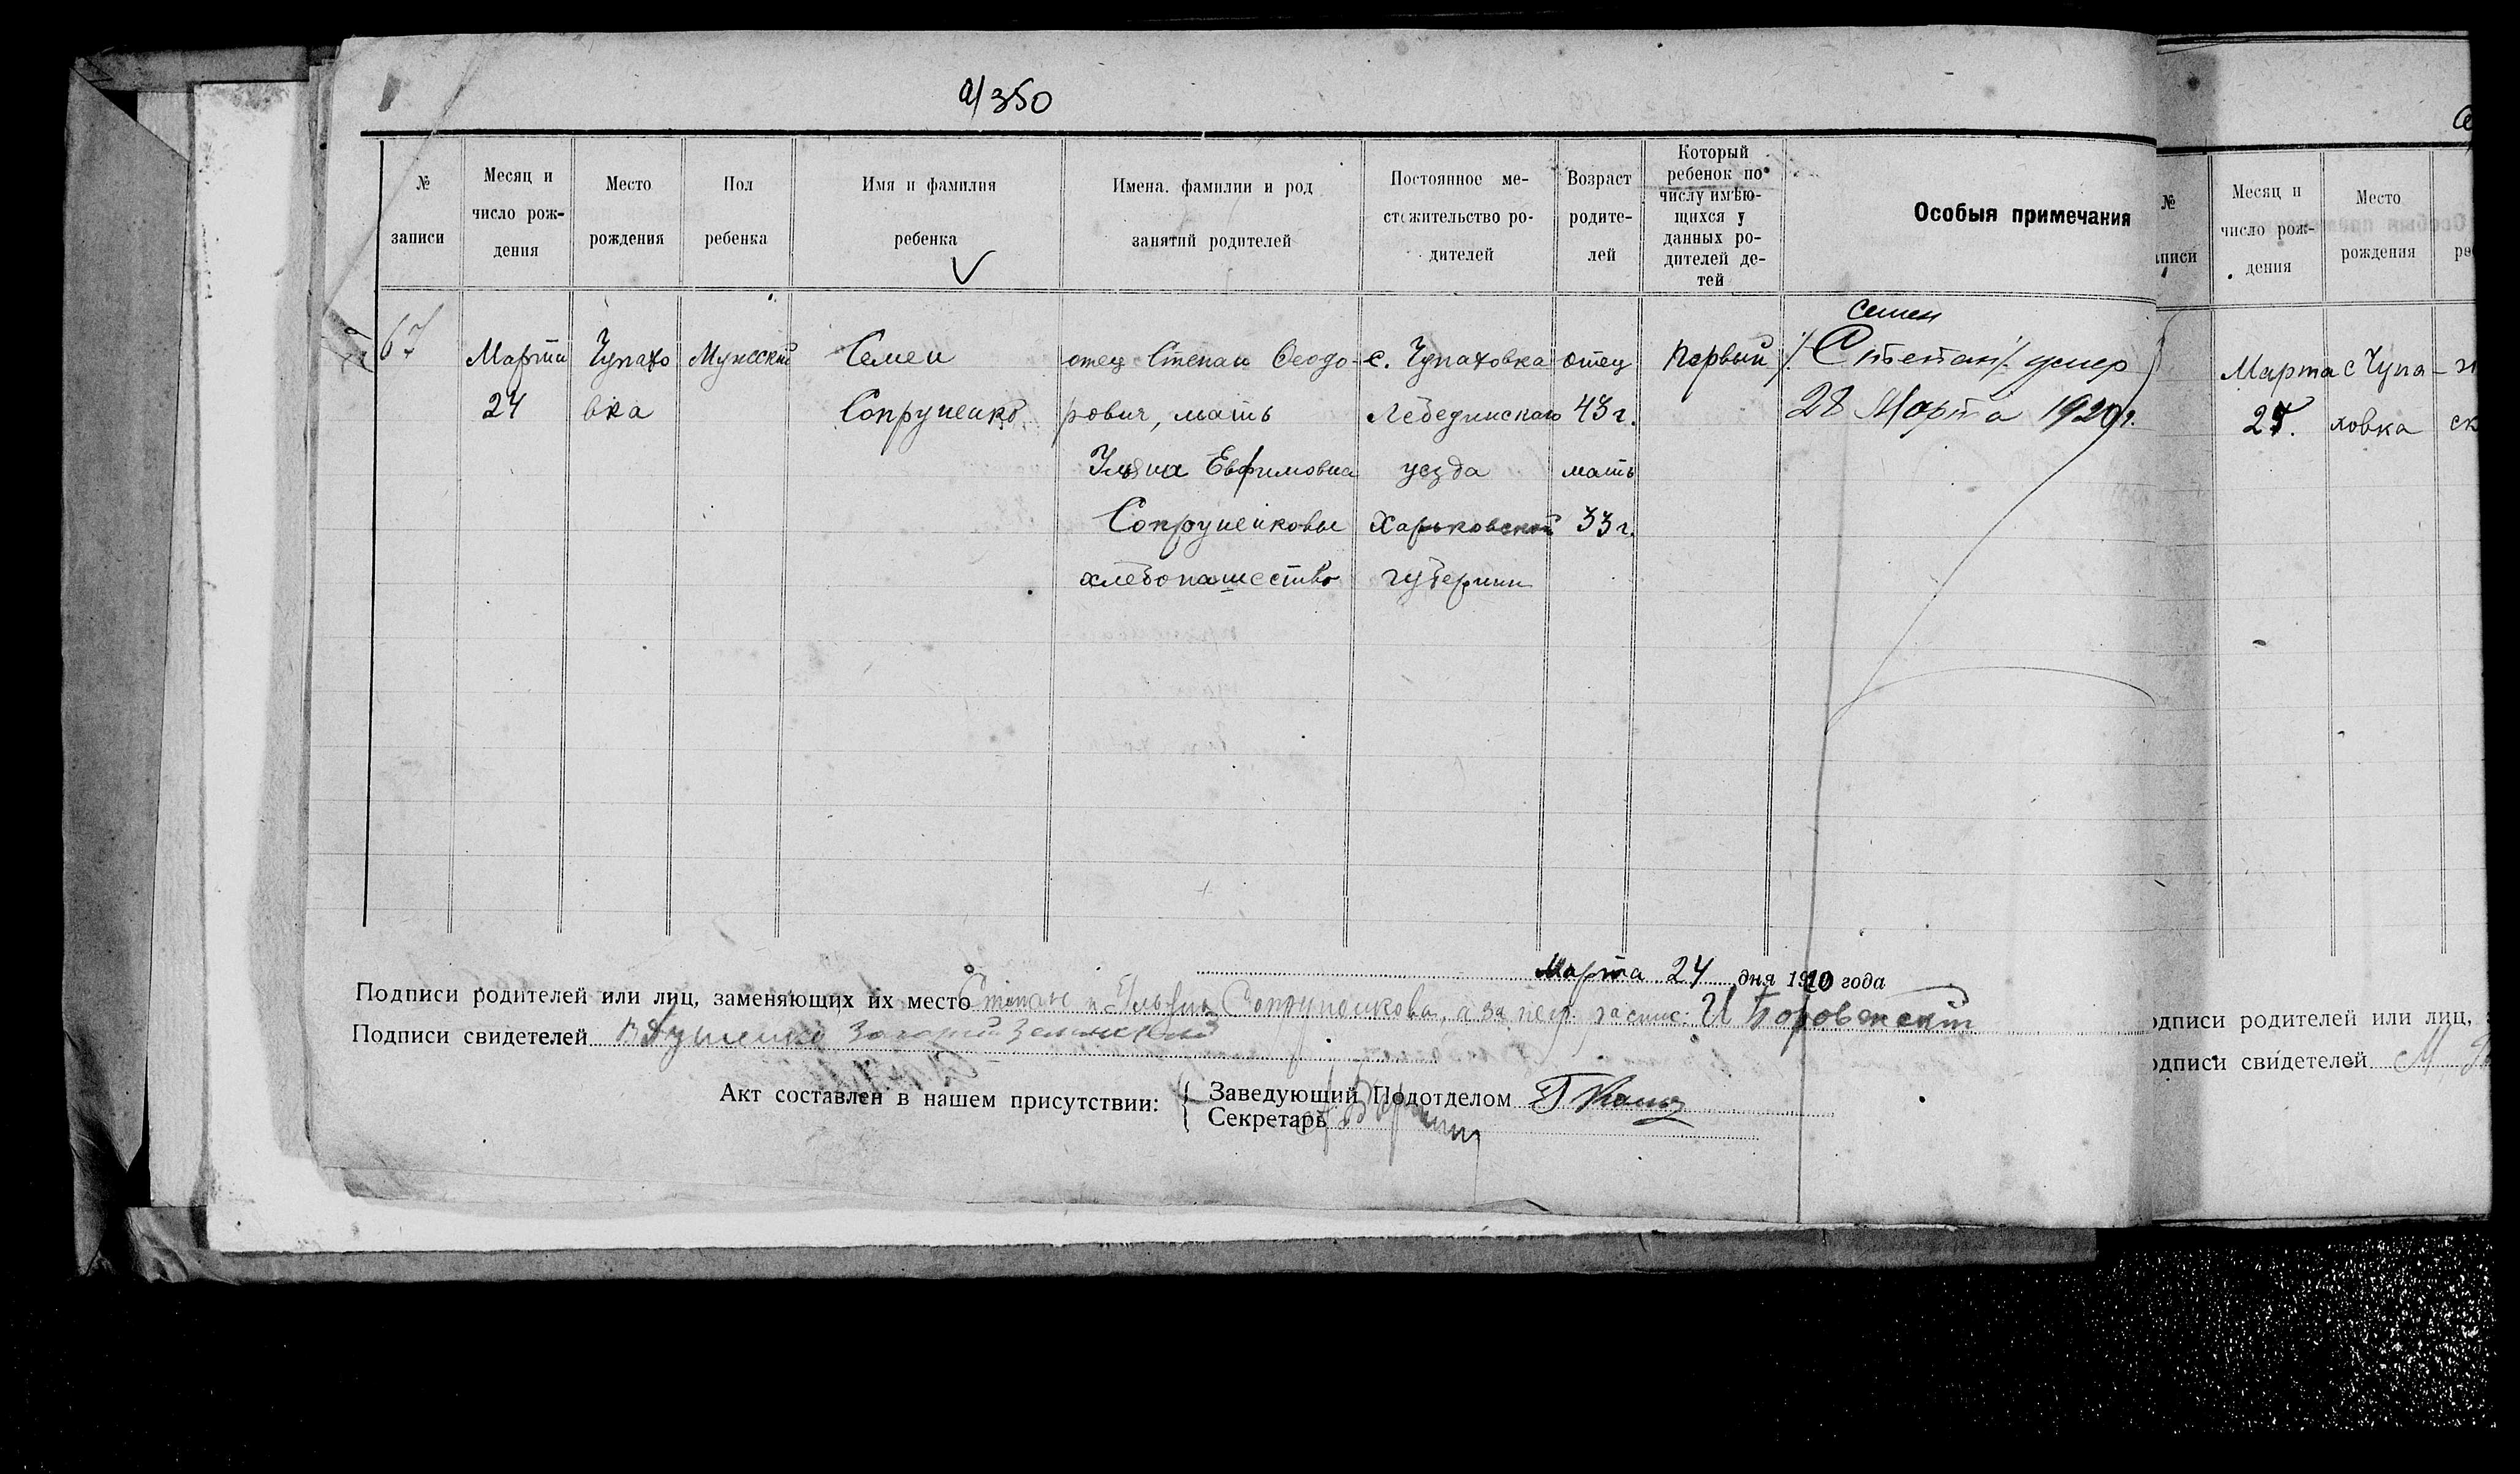 а/350
№ записи
Месяц и число рождения
Место рождения
Пол ребенка
Имя и фамилия ребенка
Имена. фамилии и род занятий родителей
Постоянное местожительство родителей
Возраст родителей
Который ребенок по числу имѣющихся у данных родителей детей
Особыя примечания
67
Марта
24
Чупахо
вка
Мужеский
Семен
Сопруненко
отец Степан Феодо-
рович, мать
Ульяна Евфимовна
Сопруненковы
хлебопашество
с. Чупаховка
Лебединскаго
уезда
Харьковской
губернии
отец
43 г.
мать
33 г.
Первый
Семен
Степан умер
28 Марта 1920 г.
Марта 24 дня 1920 года
Подписи родителей или лиц, заменяющих их место Степан и Ульяна Сопруненкова, а за негр. распис. И Боровский
Подписи свидетелей
Акт составлен в нашем присутствии:
Заведующий Подотделом
Секретарь
№
аписи
Месяц и
число рож-
дения
Место
рождения
ре
Марта
25.
с Чупа-
ховка
ск
одписи родителей или лиц,
одписи свидетелей М